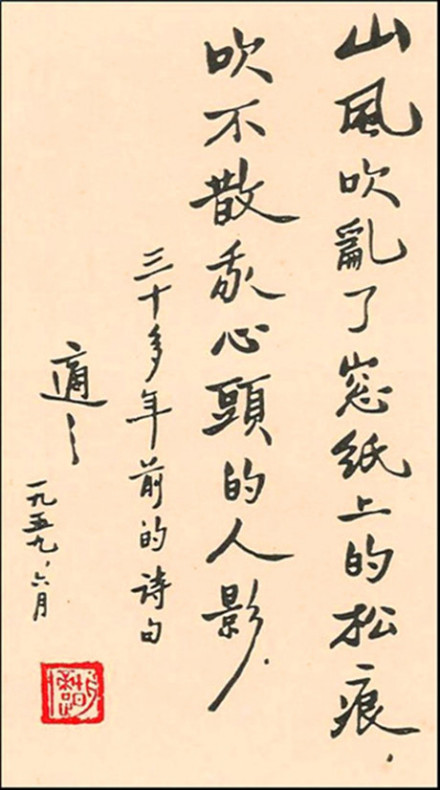 山風吹亂了窓紙上的松痕.
吹不散我心頭的人影.
三十多年前的诗句
適之
一九五九、六月